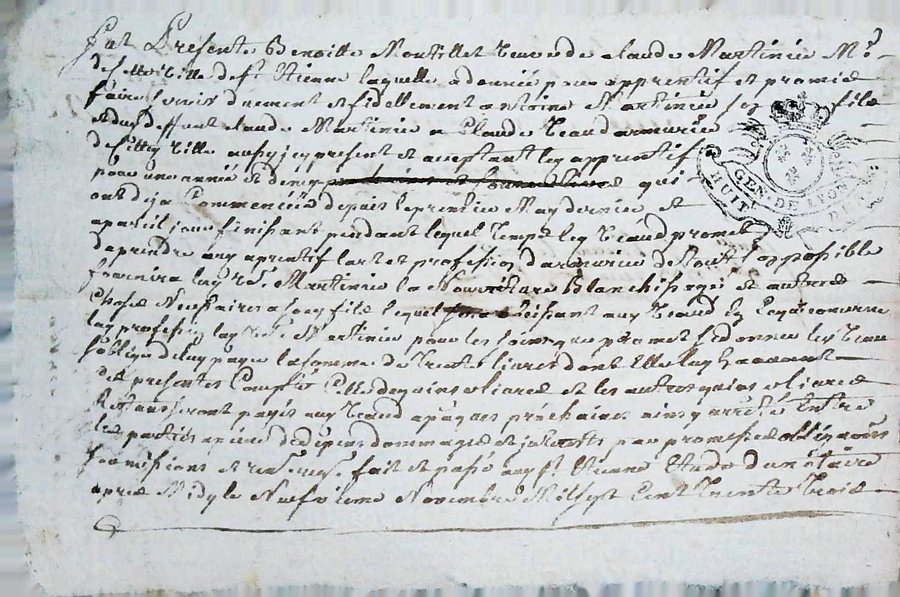 Fut Presente Benoitte Montillet veuve de claude Martinier Md
de cette ville de St Etienne laquelle a donné pour apprentif et promis
faire servir duement et fidellement antoine Martinier son fils
et du deffunt claude Martinier a Claude Teaud armurier
de cette ville aussy icy present et acceptant led apprentif
pour une année et demy qui
ont deja Commencée depuis le premier May dernier et
a pareil jour finissant pendant lequel temps led Teaud promet
daprendre aud aprentif lart et profession darmurier de tout son possible
fournira lad ve Martinier la Nourriture Blanchissage et autres
choses Necessaires a son fils lequel obeissant aud Teaud en ce qui concerne
lad profession lad ve Martinier pour les soins que promet se donner led Teaud
soblige de luy payer la somme de trente livres dont Elle luy a avant
des presentes Compté Celle de quinze livres et les autres quinze livres
Restans seront payés aud Teaud a paques prochaines ainsy arrêté Entre
les parties a peine de depens dommages et interests par promesses obligaons
soumissions et renonc fait et passé aud St Etienne Etude du notaire
apres Midy le Neufvieme Novembre Mil sept Cent trente trois
HUIT
GEN. DE LYON